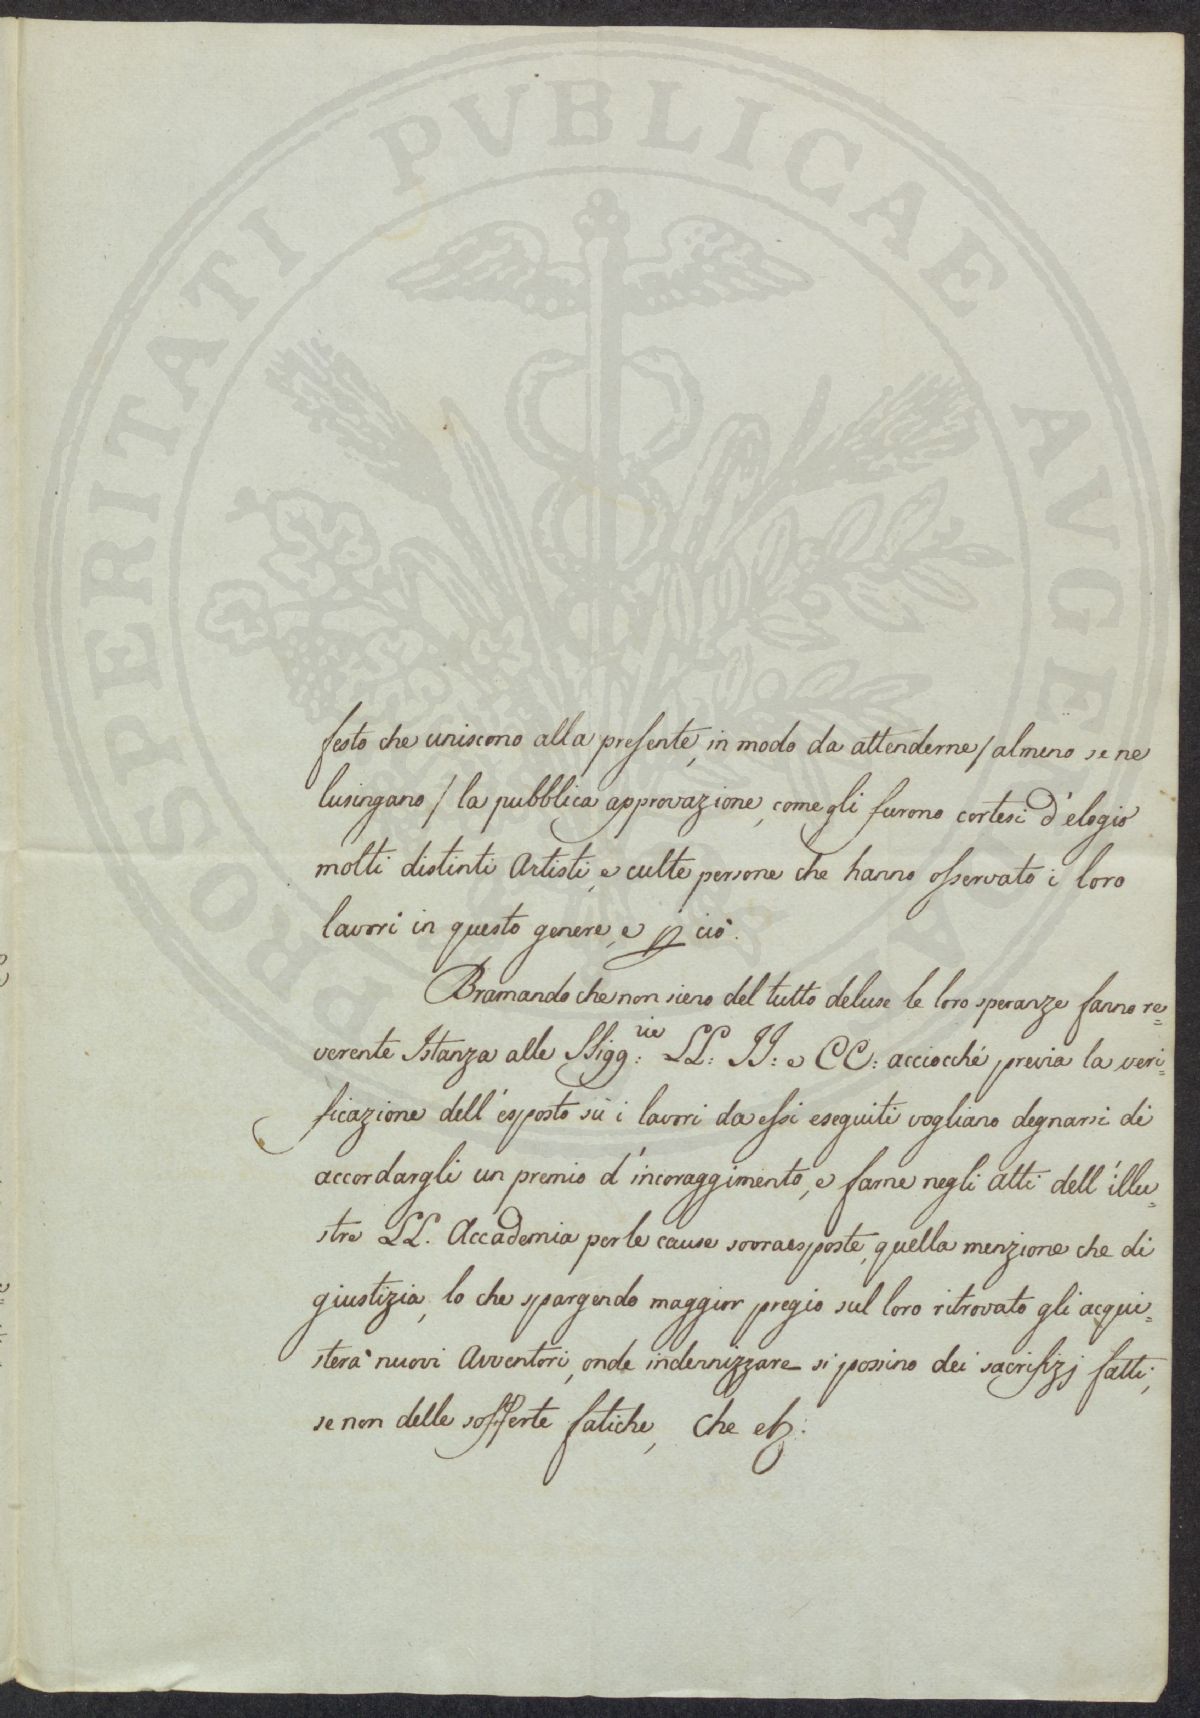 PROSPERITATI PVBLICAE AVGE
festo che uniscono alla presente, in modo da attenderne / almeno se ne
lusingano / la pubblica approvazione, come gli furono cortesi d'elogio
molti distinti Artisti, e culte persone che hanno osservato i loro
lavori in questo genere, e p ciò.
Bramando che non sieno del tutto deluse le loro speranze fanno re=
verente Istanza alle SSigg:rie LL: II: e CC: acciocché previa la veri=
ficazione dell'esposto sù i lavori da essi eseguiti vogliano degnarsi di
accordargli un premio d'incoraggimento, e farne negli atti dell'illu=
stre LL. Accademia per le cause sovraesposte, quella menzione che di
giustizia, lo che spargendo maggior pregio sul loro ritrovato gli acqui=
sterà nuovi Avventori, onde indennizzare si possino dei sacrifizj fatti,
se non delle sofferte fatiche, Che etc: